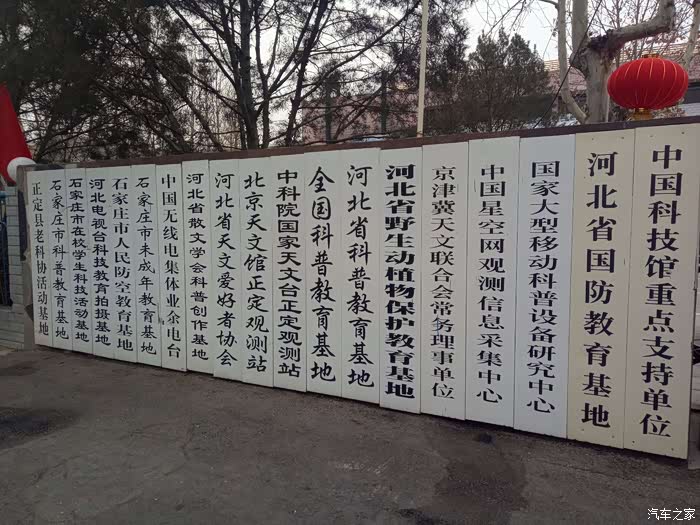 中国科技馆重点支持单位
河北省国防教育基地
国家大型移动科普设备研究中心
中国星空网观测信息采集中心
京津冀天文联合会常务理事单位
河北省野生动植物保护教育基地
河北省科普教育基地
全国科普教育基地
中科院国家天文台正定观测站
北京天文馆正定观测站
河北省天文爱好者协会
河北省散文学会科普创作基地
中国无线电集体业余电台
石家庄市未成年教育基地
石家庄市人民防空教育基地
河北电视台科技教育拍摄基地
石家庄市在校学生科技活动基地
石家庄市科普教育基地
正定县老科协活动基地
汽车之家